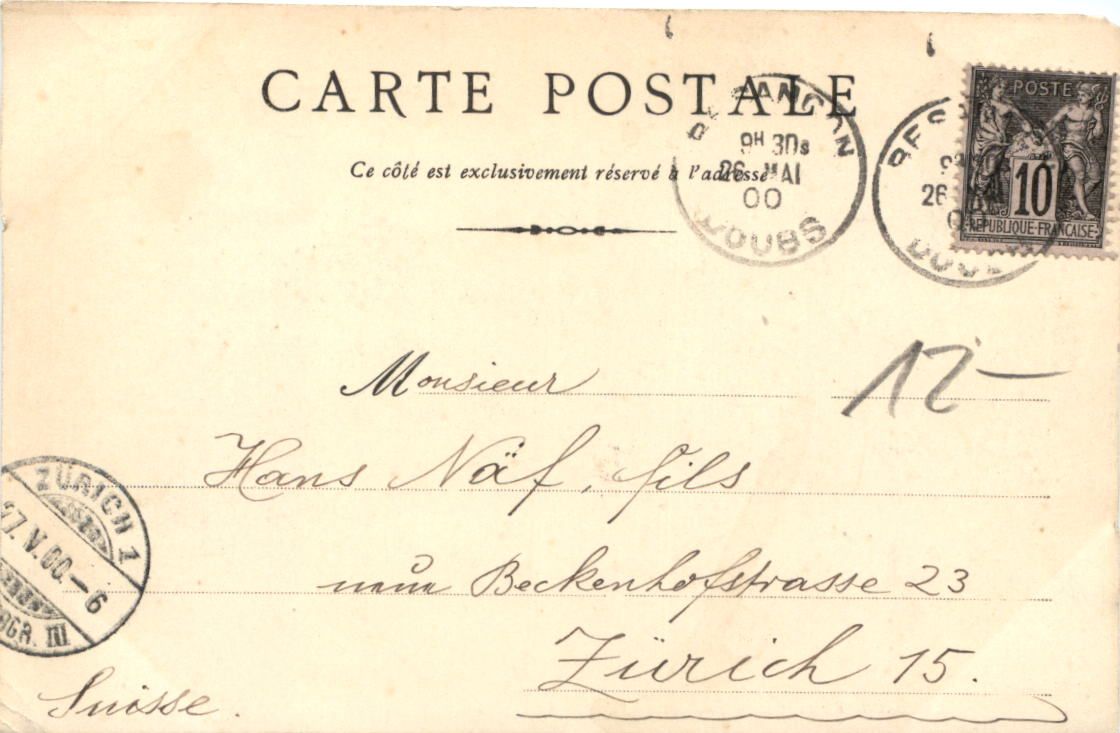 CARTE POSTALE
Ce côté est exclusivement réservé à l'adresse
BESANÇON
9H 30s
26 MAI
00
DOUBS
BESANÇON
26
DOUBS
POSTE
10
REPUBLIQUE FRANÇAISE
12—
Monsieur
Hans Näf, fils
neue Beckenhofstrasse 23
Zürich 15.
Suisse.
ZÜRICH 1
27.V.00.—6
III